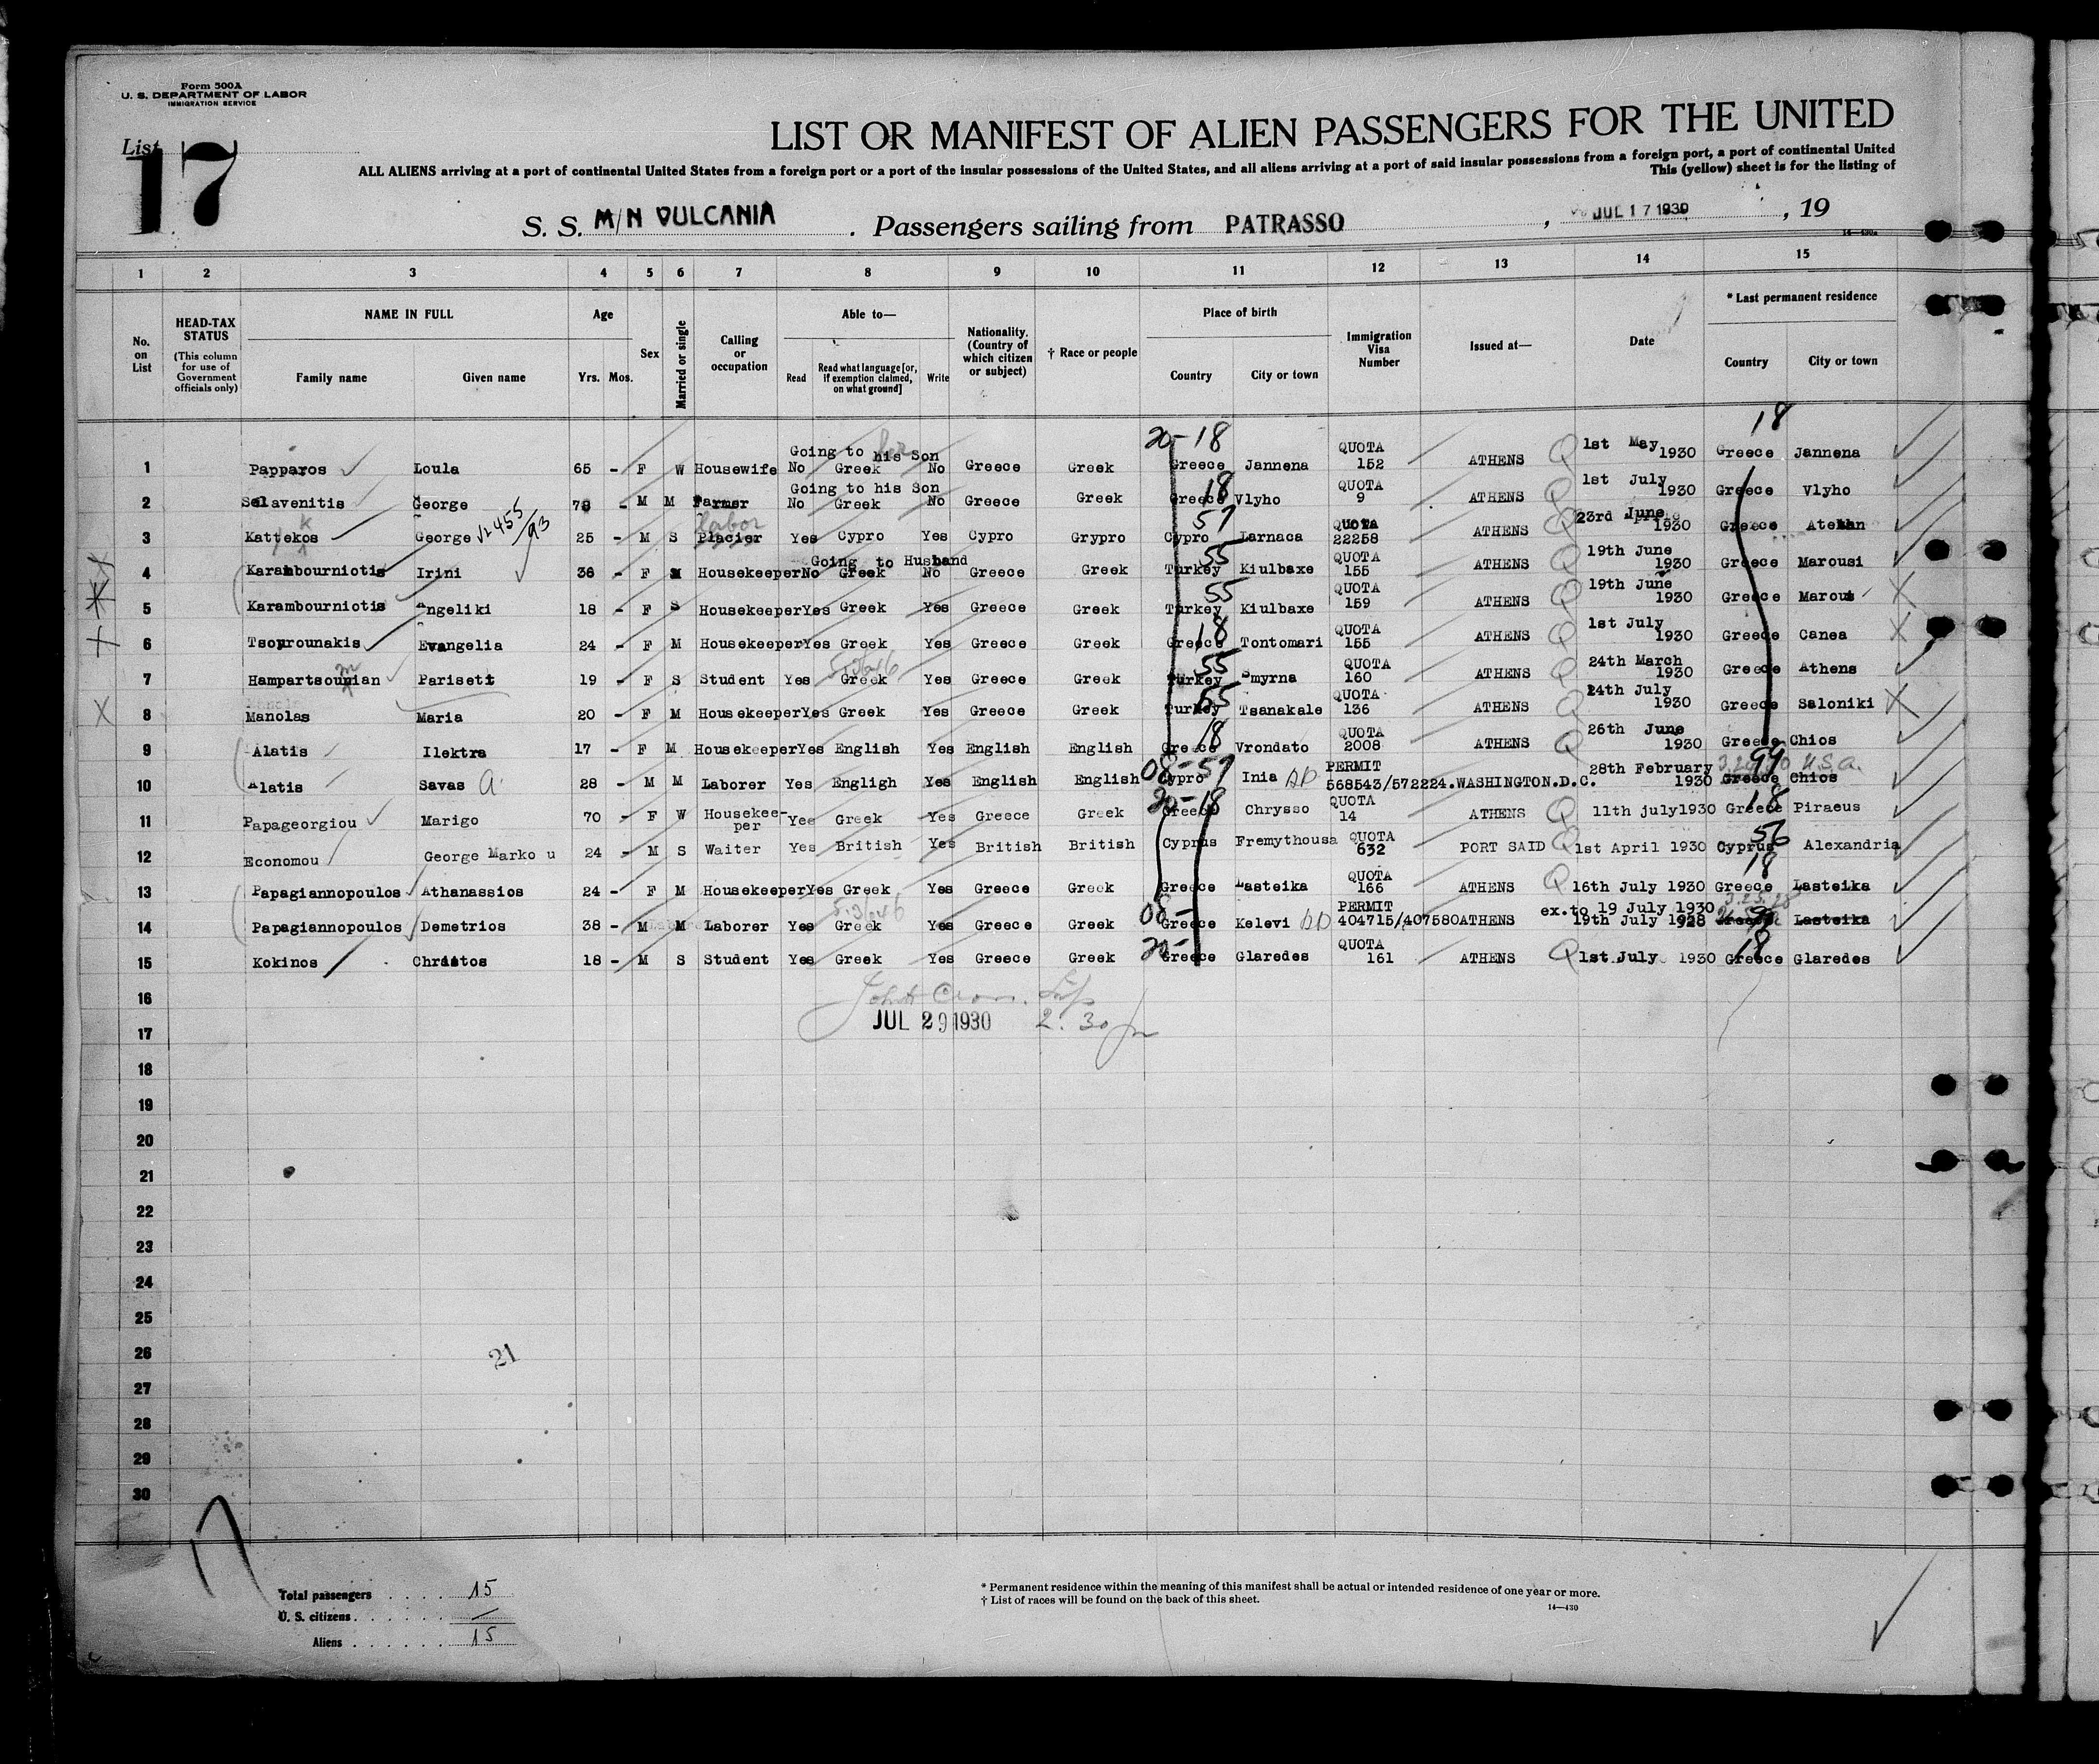 Form 500A
U. S. DEPARTMENT OF LABOR
IMMIGRATION SERVICE
List 17
LIST OR MANIFEST OF ALIEN PASSENGERS FOR THE UNITED
ALL ALIENS arriving at a port of continental United States from a foreign port or a port of the insular possessions of the United States, and all aliens arriving at a port of said insular possessions from a foreign port, a port of continental United
This (yellow) sheet is for the listing of
S. S. M/N VULCANIA . Passengers sailing from PATRASSO , JUL 17 1930 , 19
14—430a
1 2 3 4 5 6 7 8 9 10 11 12 13 14 15
No. on List
HEAD-TAX STATUS
(This column for use of Government officials only)
NAME IN FULL
Family name Given name
Age
Yrs. Mos.
Sex
Married or single
Calling or occupation
Able to—
Read Read what language [or, if exemption claimed, on what ground] Write
Nationality. (Country of which citizen or subject)
† Race or people
Place of birth
Country City or town
Immigration Visa Number
Issued at—
Date
* Last permanent residence
Country City or town
20-18 18
Going to his Son her
1 Papparos Loula 65 - F W Housewife No Greek No Greece Greek Greece Jannena QUOTA 152 ATHENS Q 1st May 1930 Greece Jannena
Going to his Son
2 Selavenitis George 78 - M M Farmer No Greek No Greece Greek Greece 18 Vlyho QUOTA 9 ATHENS Q 1st July 1930 Greece Vlyho
3 Kattekos k George 12455/93 25 - M S Placier labor Yes Cypro Yes Cypro Grypro Cypro 57 Larnaca QUOTA 22258 ATHENS Q 23rd June 1930 Greece
Going to Husband
4 Karambourniotis Irini 36 - F M Housekeeper No Greek No Greece Greek Turkey 55 Kiulbaxe QUOTA 155 ATHENS Q 19th June 1930 Greece Marousi
5 Karambourniotis Angeliki 18 - F S Housekeeper Yes Greek Yes Greece Greek Turkey 55 Kiulbaxe QUOTA 159 ATHENS Q 19th June 1930 Greece Marousi
6 Tsourounakis Evangelia 24 - F M Housekeeper Yes Greek Yes Greece Greek Greece 18 Tontomari QUOTA 155 ATHENS Q 1st July 1930 Greece Canea
7 Hampartsounian m Parisett 19 - F S Student Yes Greek Yes Greece Greek Turkey 55 Smyrna QUOTA 160 ATHENS Q 24th March 1930 Greece Athens
8 Manolas Maria 20 - F M Housekeeper Yes Greek Yes Greece Greek Turkey 55 Tsanakale QUOTA 136 ATHENS Q 24th July 1930 Greece Saloniki
9 Alatis Ilektra 17 - F M Housekeeper Yes English Yes English English Greece 18 Vrondato QUOTA 2008 ATHENS Q 26th June 1930 Greece Chios
10 Alatis Savas a. 28 - M M Laborer Yes Engligh Yes English English 08-57 Cypro Inia PERMIT 568543/572224.WASHINGTON.D.C. 28th February 1930 Greece 99 U.S.A. Chios
11 Papageorgiou Marigo 70 - F W Housekee-per Yes Greek Yes Greece Greek 20-18 Greece Chrysso QUOTA 14 ATHENS Q 11th july1930 Greece 18 Piraeus
12 Economou George Marko u 24 - M S Waiter Yes British Yes British British Cyprus Fremythousa QUOTA 632 PORT SAID Q 1st April 1930 Cyprus 56 Alexandria
13 Papagiannopoulos Athanassios 24 - F M Housekeeper Yes Greek Yes Greece Greek Greece Lasteika QUOTA 166 ATHENS Q 16th July 1930 Greece 18 Lasteika
14 Papagiannopoulos Demetrios 38 - M M Laborer Yes Greek Yes Greece Greek 08- Greece Kelevi PERMIT 404715/407580 ATHENS ex.to 19 July 1930 19th July 1928 99 Lasteika
15 Kokinos Christos 18 - M S Student Yes Greek Yes Greece Greek 20- Greece Glaredes QUOTA 161 ATHENS Q 1st.July 1930 Greece 18 Glaredes
16
JUL 29 1930 2.30 p
17
18
19
20
21
22
23
24
25
26
21
27
28
29
30
17
Total passengers . . . . 15
U. S. citizens . . . . . . —
Aliens . . . . . . 15
* Permanent residence within the meaning of this manifest shall be actual or intended residence of one year or more.
† List of races will be found on the back of this sheet.
14—430